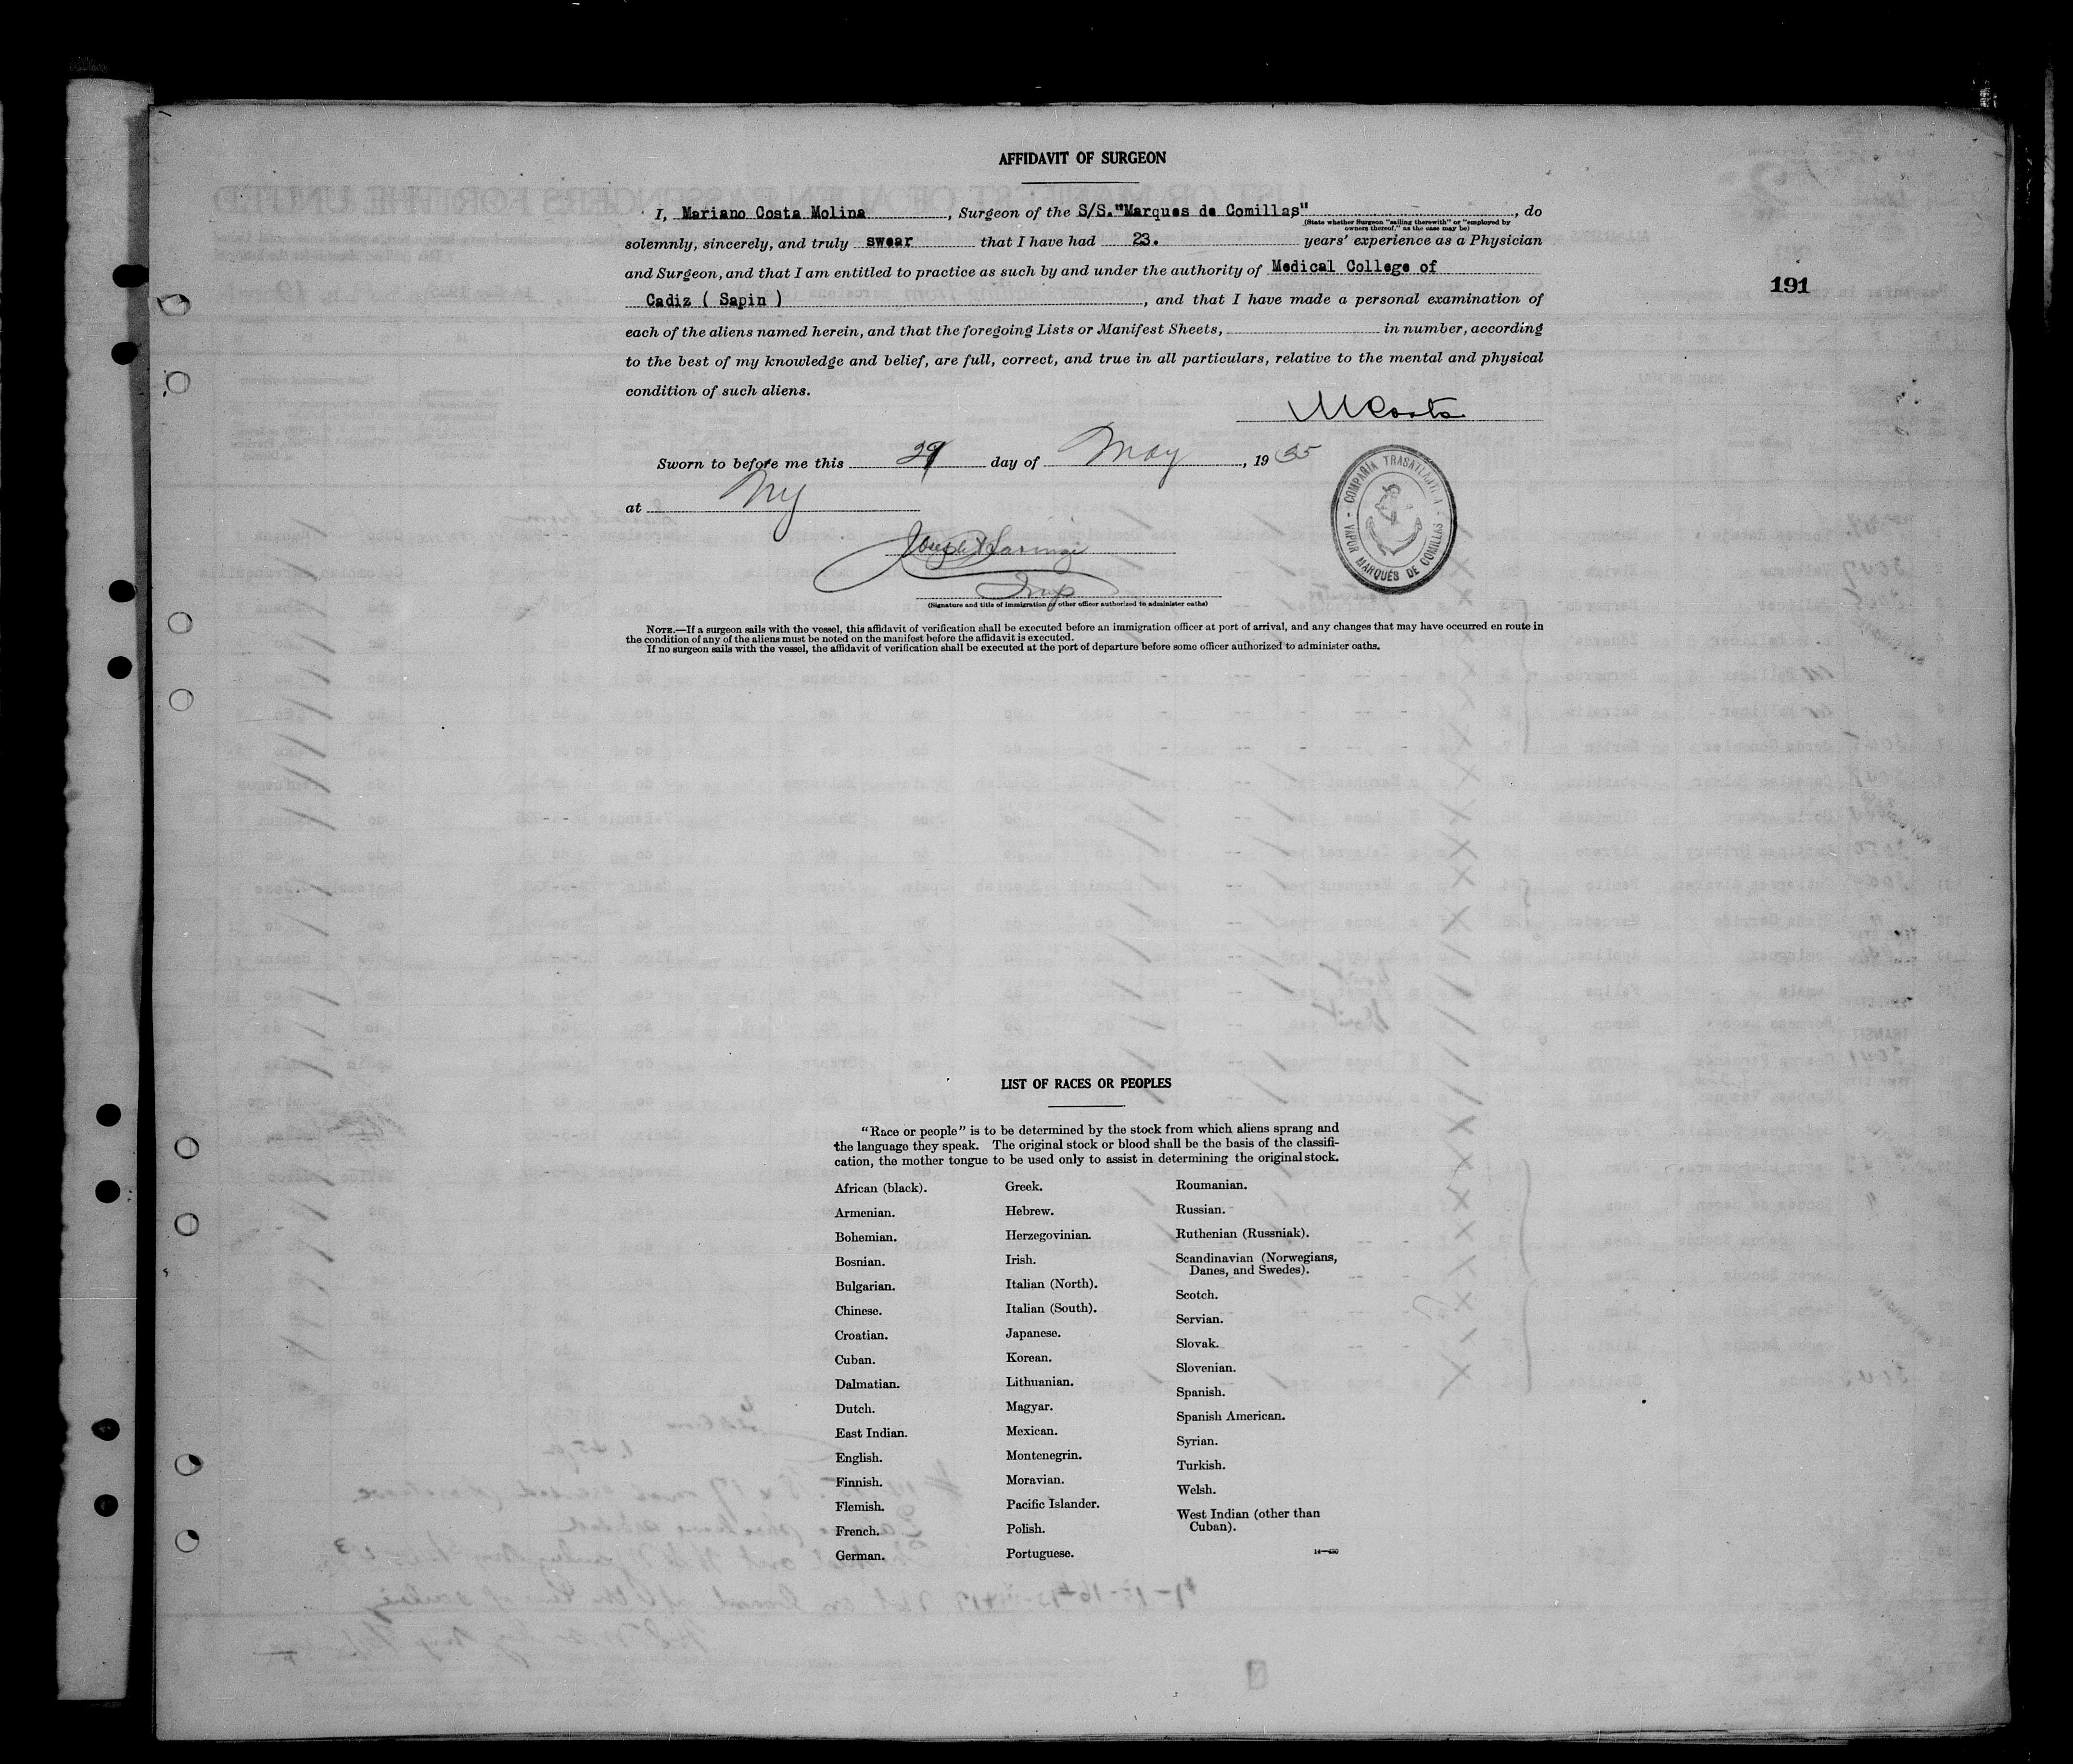 AFFIDAVIT OF SURGEON
I, Mariano Costa Molina, Surgeon of the S/S."Marques de Comillas", do
(State whether Surgeon "sailing therewith" or "employed by
owners thereof," as the case may be)
solemnly, sincerely, and truly swear that I have had 23. years' experience as a Physician
and Surgeon, and that I am entitled to practice as such by and under the authority of Medical College of
191
Cadiz ( Sapin ), and that I have made a personal examination of
each of the aliens named herein, and that the foregoing Lists or Manifest Sheets, in number, according
to the best of my knowledge and belief, are full, correct, and true in all particulars, relative to the mental and physical
condition of such aliens.
MCosta
Sworn to before me this 29 day of May, 1935
at NY
COMPAÑIA TRASATLANTICA - VAPOR MARQUÉS DE COMILLAS -
Joseph
Insp
(Signature and title of immigration or other officer authorized to administer oaths)
NOTE.—If a surgeon sails with the vessel, this affidavit of verification shall be executed before an immigration officer at port of arrival, and any changes that may have occurred en route in
the condition of any of the aliens must be noted on the manifest before the affidavit is executed.
If no surgeon sails with the vessel, the affidavit of verification shall be executed at the port of departure before some officer authorized to administer oaths.
LIST OF RACES OR PEOPLES
"Race or people" is to be determined by the stock from which aliens sprang and
the language they speak. The original stock or blood shall be the basis of the classifi-
cation, the mother tongue to be used only to assist in determining the original stock.
African (black).
Armenian.
Bohemian.
Bosnian.
Bulgarian.
Chinese.
Croatian.
Cuban.
Dalmatian.
Dutch.
East Indian.
English.
Finnish.
Flemish.
French.
German.
Greek.
Hebrew.
Herzegovinian.
Irish.
Italian (North).
Italian (South).
Japanese.
Korean.
Lithuanian.
Magyar.
Mexican.
Montenegrin.
Moravian.
Pacific Islander.
Polish.
Portuguese.
Roumanian.
Russian.
Ruthenian (Russniak).
Scandinavian (Norwegians,
Danes, and Swedes).
Scotch.
Servian.
Slovak.
Slovenian.
Spanish.
Spanish American.
Syrian.
Turkish.
Welsh.
West Indian (other than
Cuban).